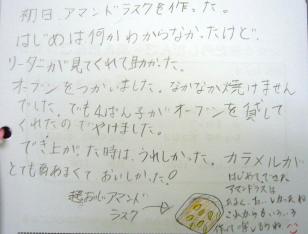 初日、アマンドラスクを作った。
はじめは何かわからなかったけど、
リーダーが見てくれて助かった。
オーブンをつかいました。なかなか焼けません
でした。でも4ぱん子がオーブンを貸して
くれたのでやけました。
でき上がった時は、うれしかった。カラメルが
とてもあまくて おいしかった!
超おいしいアマンド
ラスク
はじめてでき
アマンドラスクは
これからもいろいろ